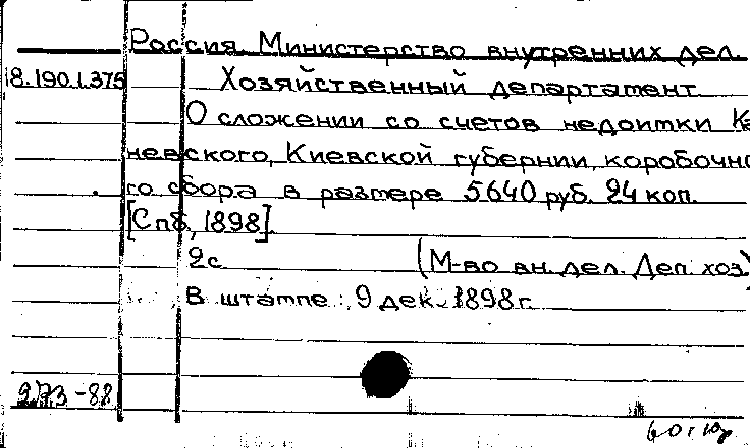 Россия. Министерство внутренних дел.
18.190.1.375 Хозяйственный департамент
О сложении со счетов недоимки Ка
невского, Киевской губернии, коробочно
го сбора в размере 5640 руб. 24 коп.
[Спб., 1898].
2с. (М-во вн. дел. Деп. хоз)
В штампе: 9 дек. 1898 г.
273-88